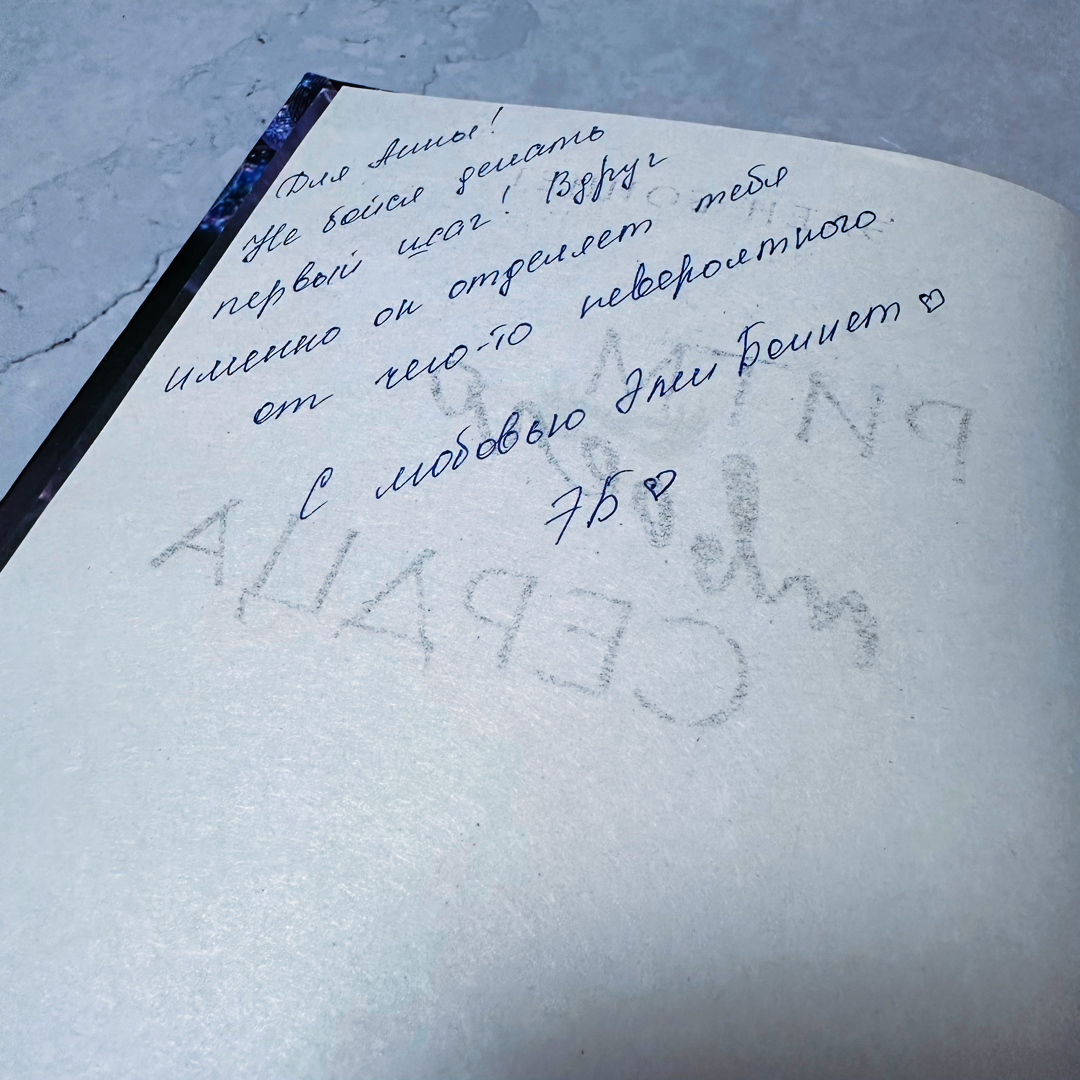 Для Анны!
Не бойся делать
первый шаг! Вдруг
именно он отделяет тебя
от чего-то невероятного.
С любовью Эми Беннет ♡
ЭБ ♡
РИТМ
СЕРДЦА